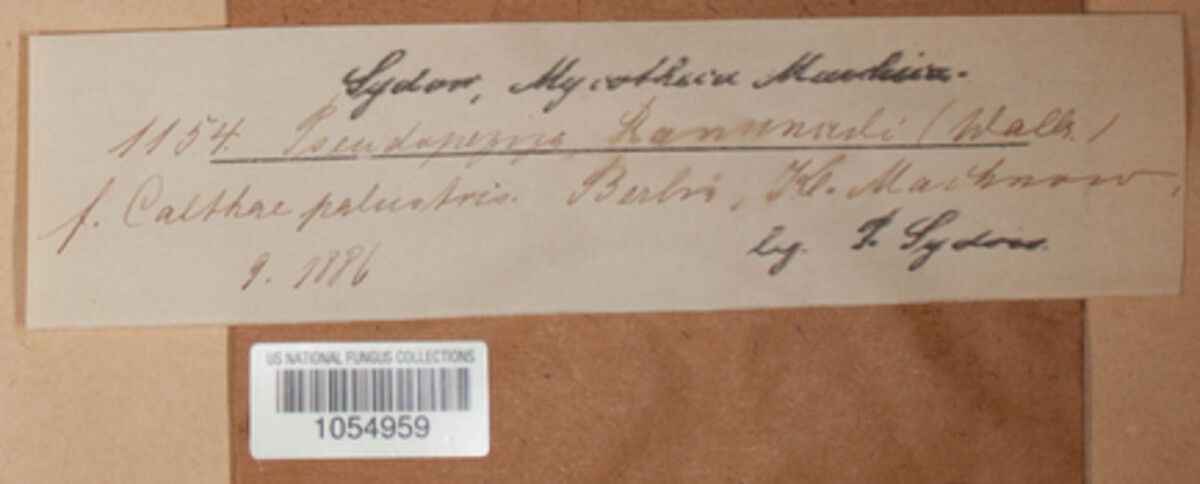 Sydow, Mycotheca Marchica.
1154. Pseudopeziza Ranunculi (Wallr.)
f. Calthae palustris. Berlin, Kl. Machnow,
9. 1886
leg. P. Sydow.
US NATIONAL FUNGUS COLLECTIONS
1054959